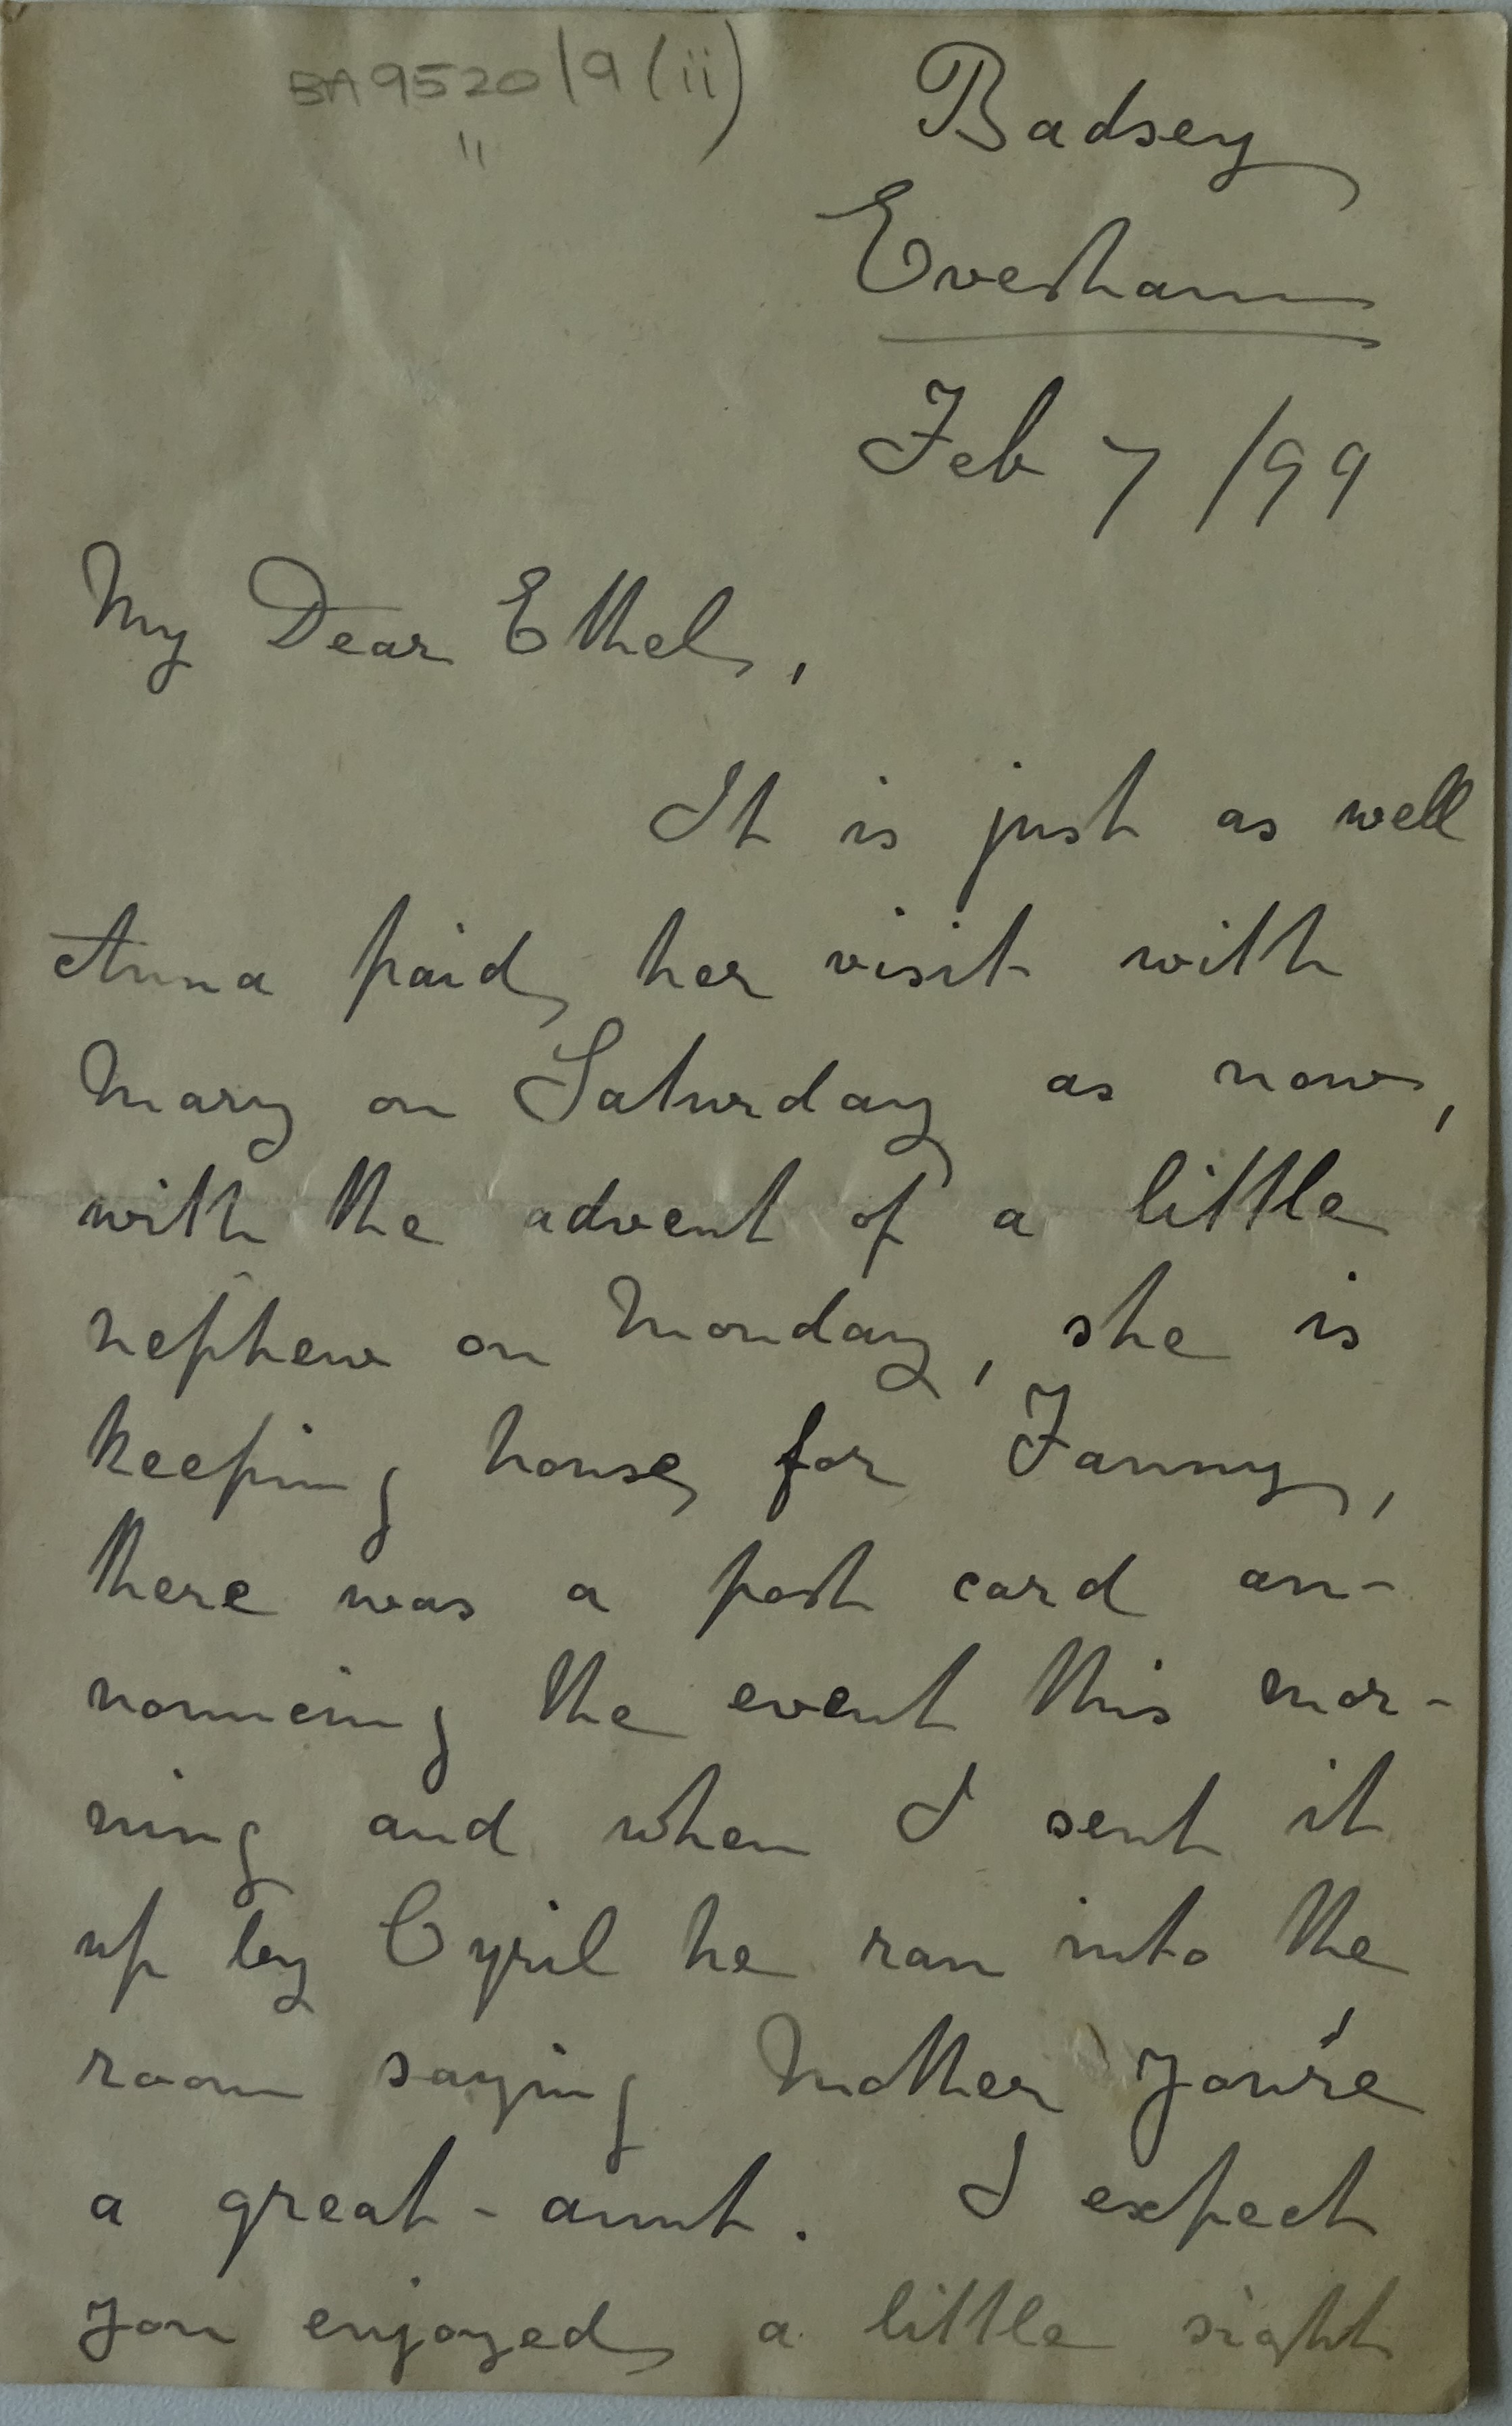 BA9520/9(ii)
"
Badsey
Evesham
Feb 7 /99
My Dear Ethel,
It is just as well
Anna paid her visit with
Mary on Saturday as now,
with the advent of a little
nephew on Monday, she is
keeping house for Fanny,
there was a post card an-
nouncing the event this mor-
ning and when I sent it
up by Cyril he ran into the
room saying Mother you're
a great-aunt. I expect
you enjoyed a little sight